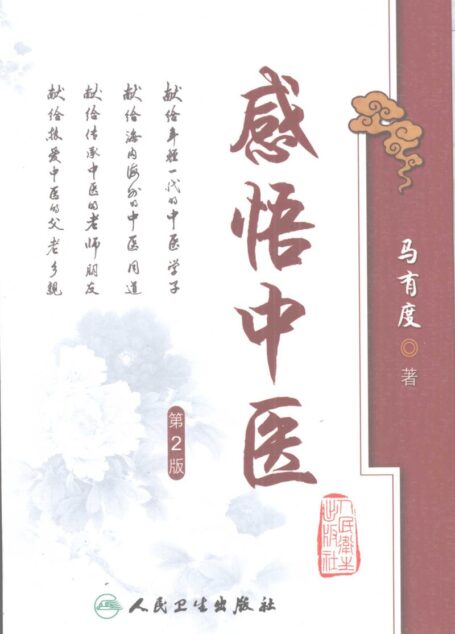 感悟中医
马有度◎著
献给年轻一代的中医学子
献给海内海外的中医同道
献给传承中医的老师朋友
献给热爱中医的父老乡亲
第2版
人民衛生
出版社
人民卫生出版社